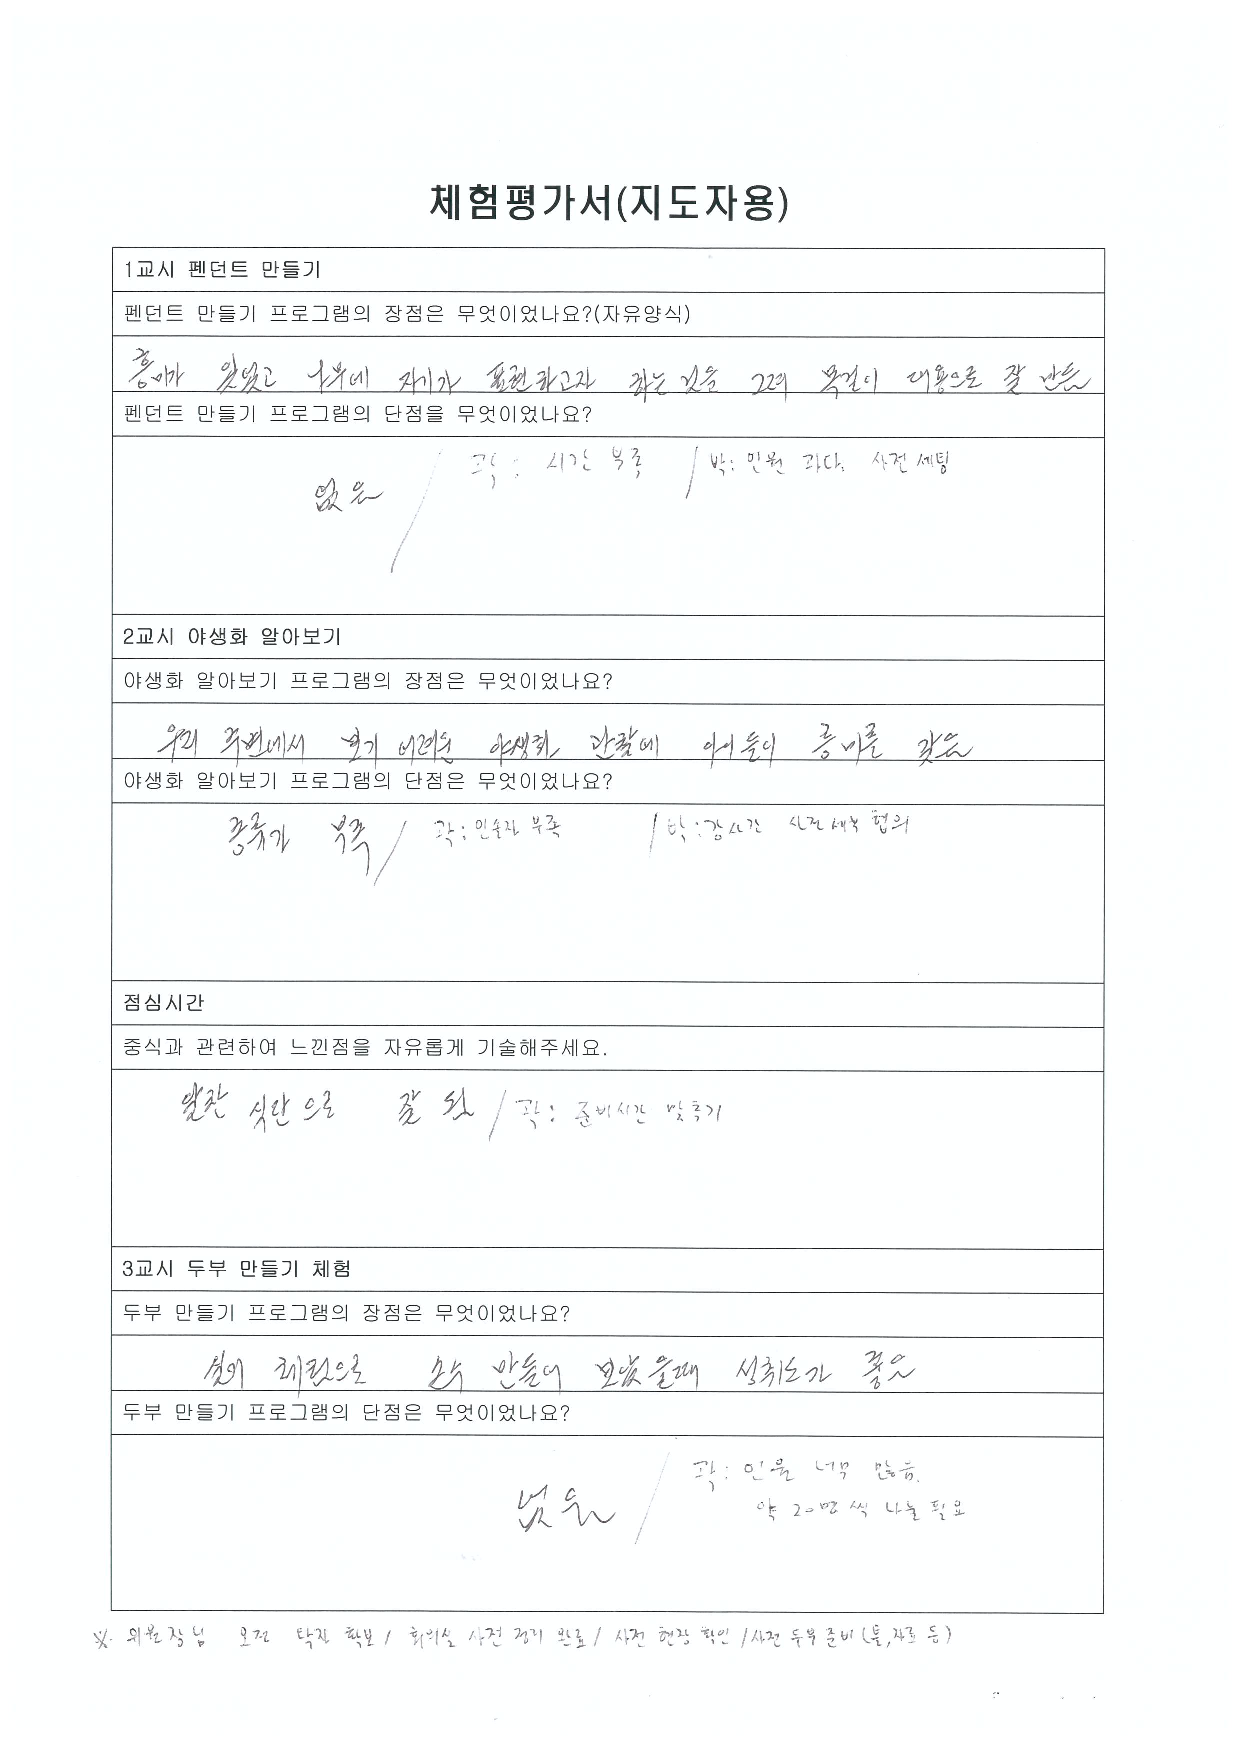 체험평가서(지도자용)
1교시 펜던트 만들기
펜던트 만들기 프로그램의 장점은 무엇이었나요?(자유양식)
흥미가 있었고 나무에 자기가 표현하고자 하는 것을 그려 목걸이 대용으로 잘 만듬
펜던트 만들기 프로그램의 단점을 무엇이었나요?
없음 / 곽: 시간 부족 / 박: 인원 과다. 사전 세팅
2교시 야생화 알아보기
야생화 알아보기 프로그램의 장점은 무엇이었나요?
우리 주변에서 보기 어려운 야생화 관찰에 아이들이 흥미를 갖음
야생화 알아보기 프로그램의 단점은 무엇이었나요?
종류가 부족 / 곽: 인솔자 부족 / 박: 강사간 사전 세부 협의
점심시간
중식과 관련하여 느낀점을 자유롭게 기술해주세요.
알찬 식단으로 잘 됨 / 곽: 준비시간 맞추기
3교시 두부 만들기 체험
두부 만들기 프로그램의 장점은 무엇이었나요?
체험으로 손수 만들어 보았을때 성취도가 좋음
두부 만들기 프로그램의 단점은 무엇이었나요?
없음 / 곽: 인원 너무 많음.
약 20명씩 나눌 필요
※ 위원장님 오전 탁자 확보 / 회의실 사전 정리 완료 / 사전 현장 확인 / 사전 두부 준비 (틀, 자료 등)